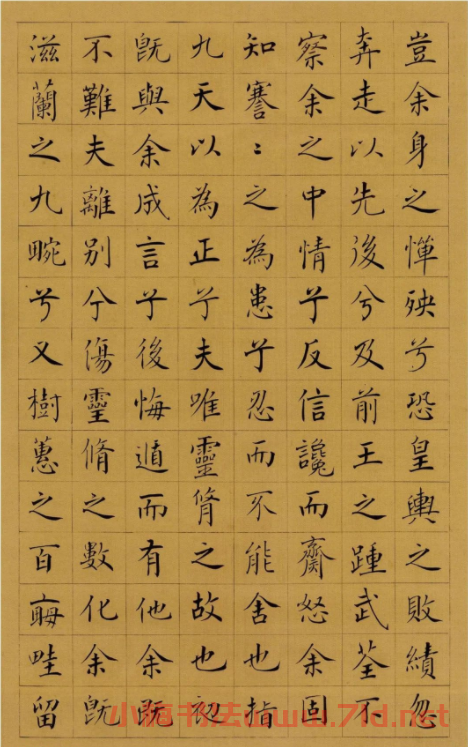 豈余身之憚殃兮恐皇輿之敗績忽
奔走以先後兮及前王之踵武荃不
察余之中情兮反信讒而齋怒余固
知謇〻之為患兮忍而不能舍也指
九天以為正兮夫唯靈脩之故也初
既與余成言兮後悔遁而有他余既
不難夫離別兮傷靈脩之數化余既
滋蘭之九畹兮又樹蕙之百畮畦留
书法